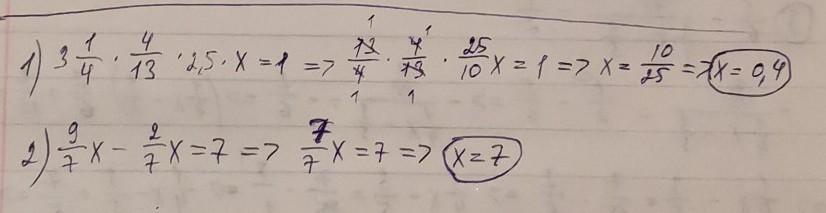 1) 3 1/4 · 4/13 · 2,5 · x = 1 => 13/4 · 4/13 · 25/10 x = 1 => x = 10/25 => x = 0,4
2) 9/7 x - 2/7 x = 7 => 7/7 x = 7 => x = 7